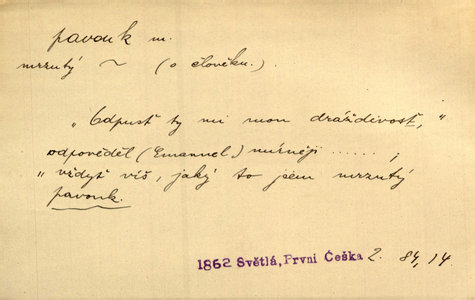 pavouk m.
mrzutý ~ (o člověku.).
„Odpusť ty mi mou dráždivost,"
odpověděl (Emanuel) mírněji ......;
„vždyť víš, jaký to jsem mrzutý
pavouk.
1862 Světlá, První Češka 2. 84, 14